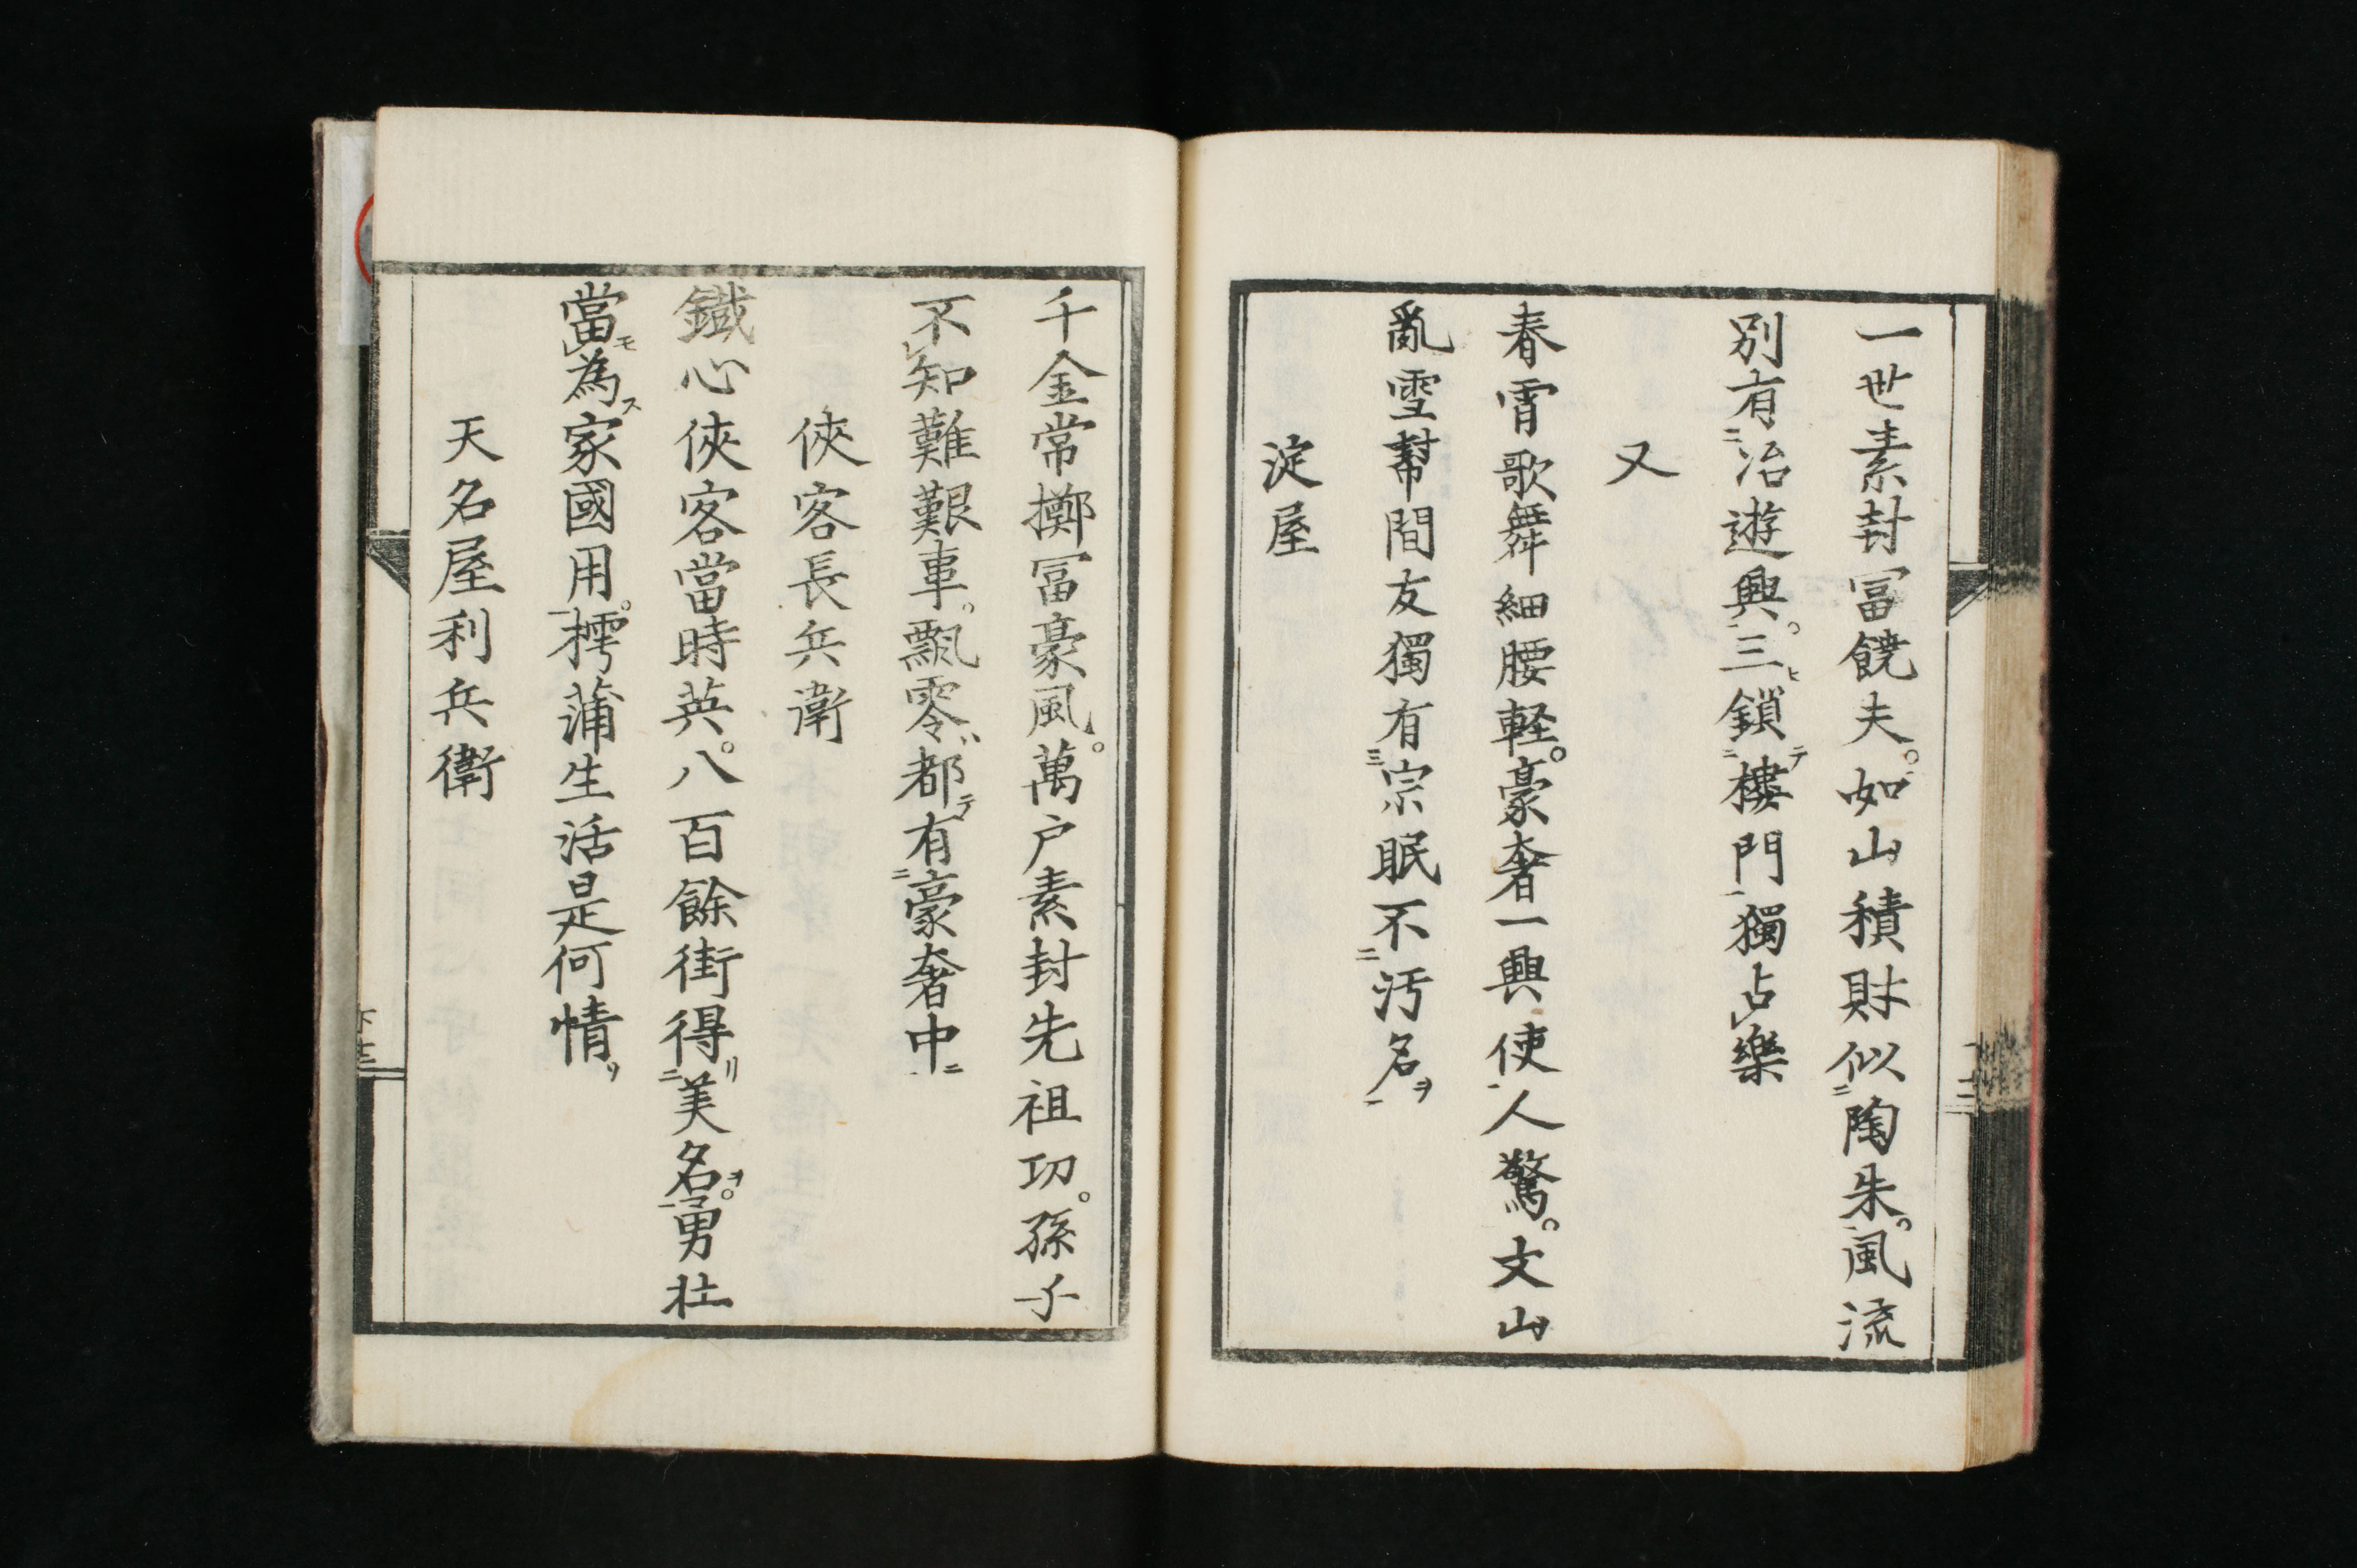 一世素封冨饒夫。如山積財似陶朱。風流
別有冶遊興。三鎖樓門獨占樂
又
春霄歌舞細腰軽。豪奢一興使人驚。文山
亂雪幇間友獨有宗眠不汚名
淀屋
千金常擲冨豪風。萬户素封先祖功。孫子
不知難艱事。飄零都有豪奢中
俠客長兵衛
鐵心俠客當時英。八百餘街得美名。勇壮
當為家國用。樗蒲生活是何情
天名屋利兵衛